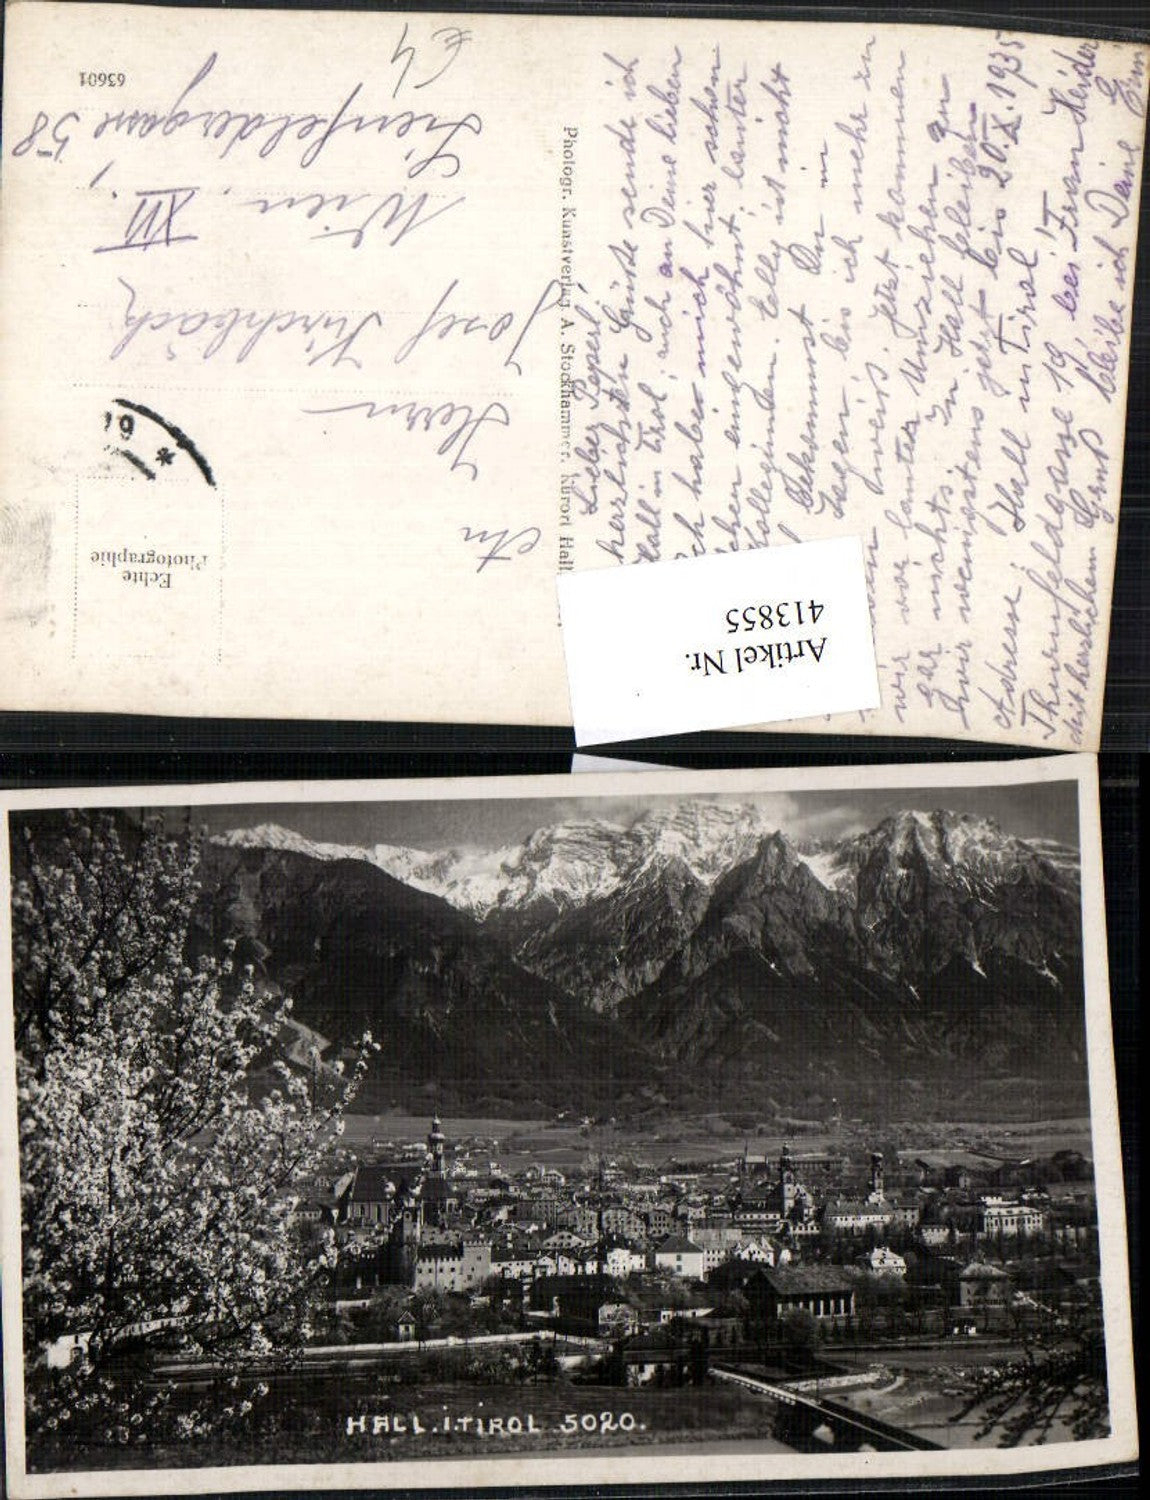 63601
Echte
Photographie
An
Herrn
Josef Kirchbach
Wien, XII.,
58
€4
Photogr. Kunstverlag A. Stockhammer, Kurort Hall
Lieber Peperl!
herzlichsten Grüße sende ich
Hall in Tirol; auch an Deine lieben
ich habe mich hier schon
eingewöhnt, leider
Kolleginnen. Elly ist nicht
bekommst Du in
bis ich mehr zu
weis. Jetzt kommen
wir vor lauter Umziehen zu
gar nichts. In Hall bleiben
wir wenigstens jetzt bis 20.X.1935
Adresse: Hall in Tirol
Thurnfeldgasse 19 bei Fran Heider
Mit herzlichem Gruß bleibe ich Deine
Artikel Nr.
413855
HALL.I.TIROL 5020.